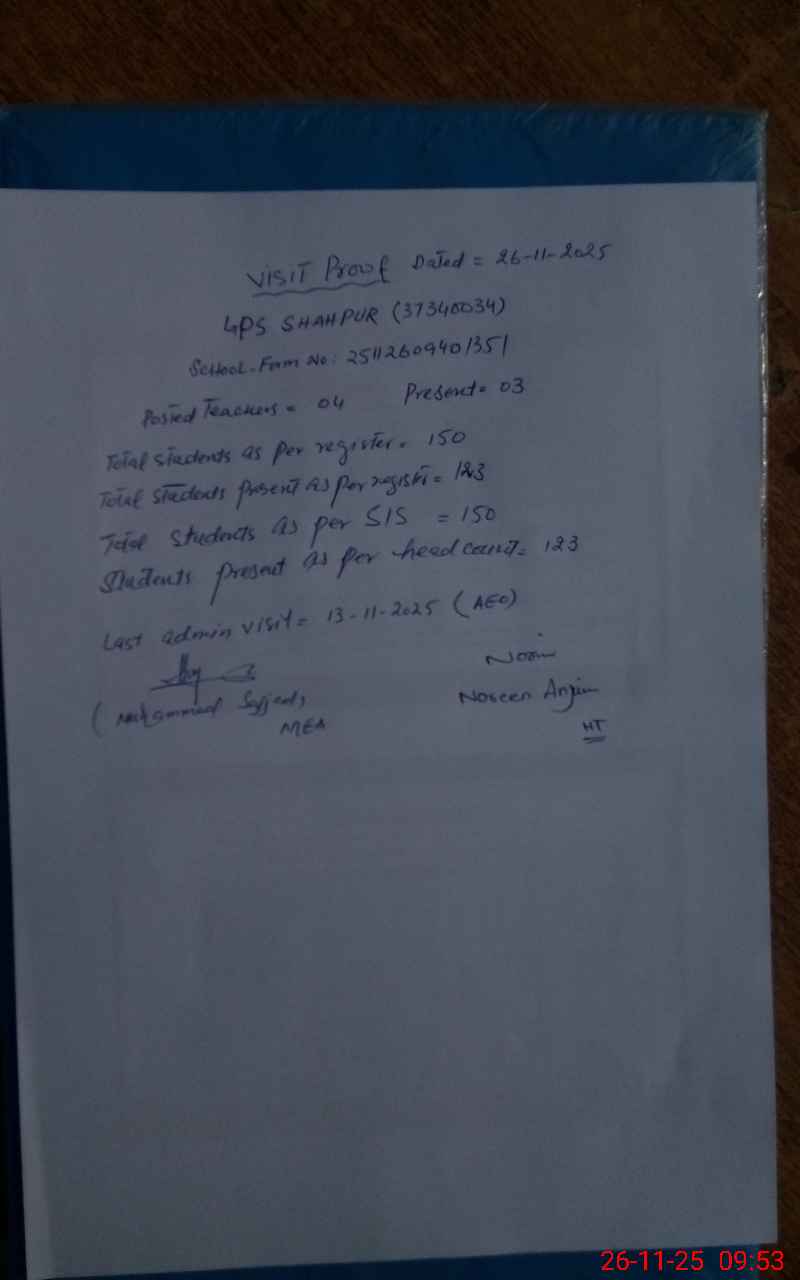 VISIT Proof Dated = 26-11-2025
GPS SHAHPUR (37340034)
School-Form No: 2511260940 1351
Posted Teachers = 04 Present = 03
Total students as per register = 150
Total students present as per register = 123
Total students as per SIS = 150
Students present as per head count = 123
Last admin visit = 13-11-2025 (AEO)
(Muhammad Sajjad)
Noseen Anjum
MEA
HT
26-11-25 09:53